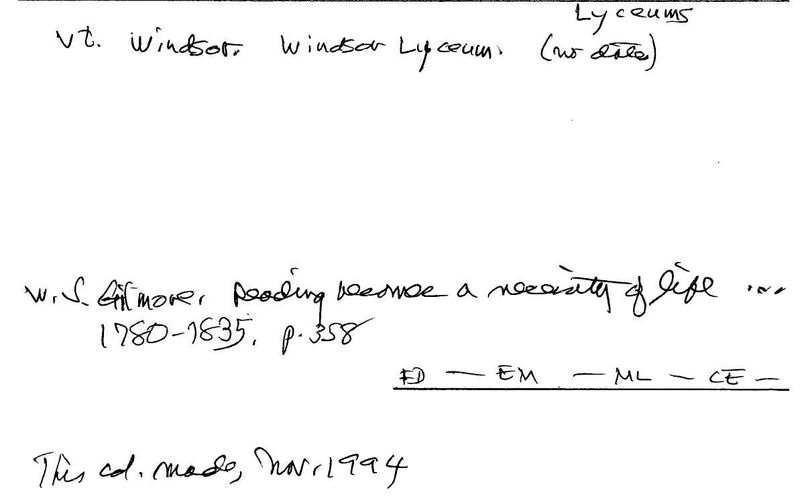 Lyceums
Vt. Windsor. Windsor Lyceum. (no date)
W. S. Gilmore, Reading becomes a necessity of life ...
1780-1835, p. 358
ED — EM — ML — CE —
This cd. made, Nov. 1994